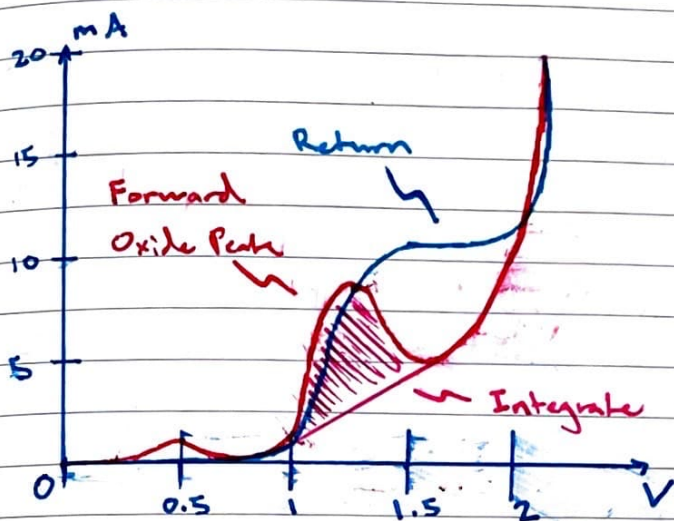 mA
20
15
10
5
0
0.5
1
1.5
2
V
Return
Forward
Oxide Peak
Integrate